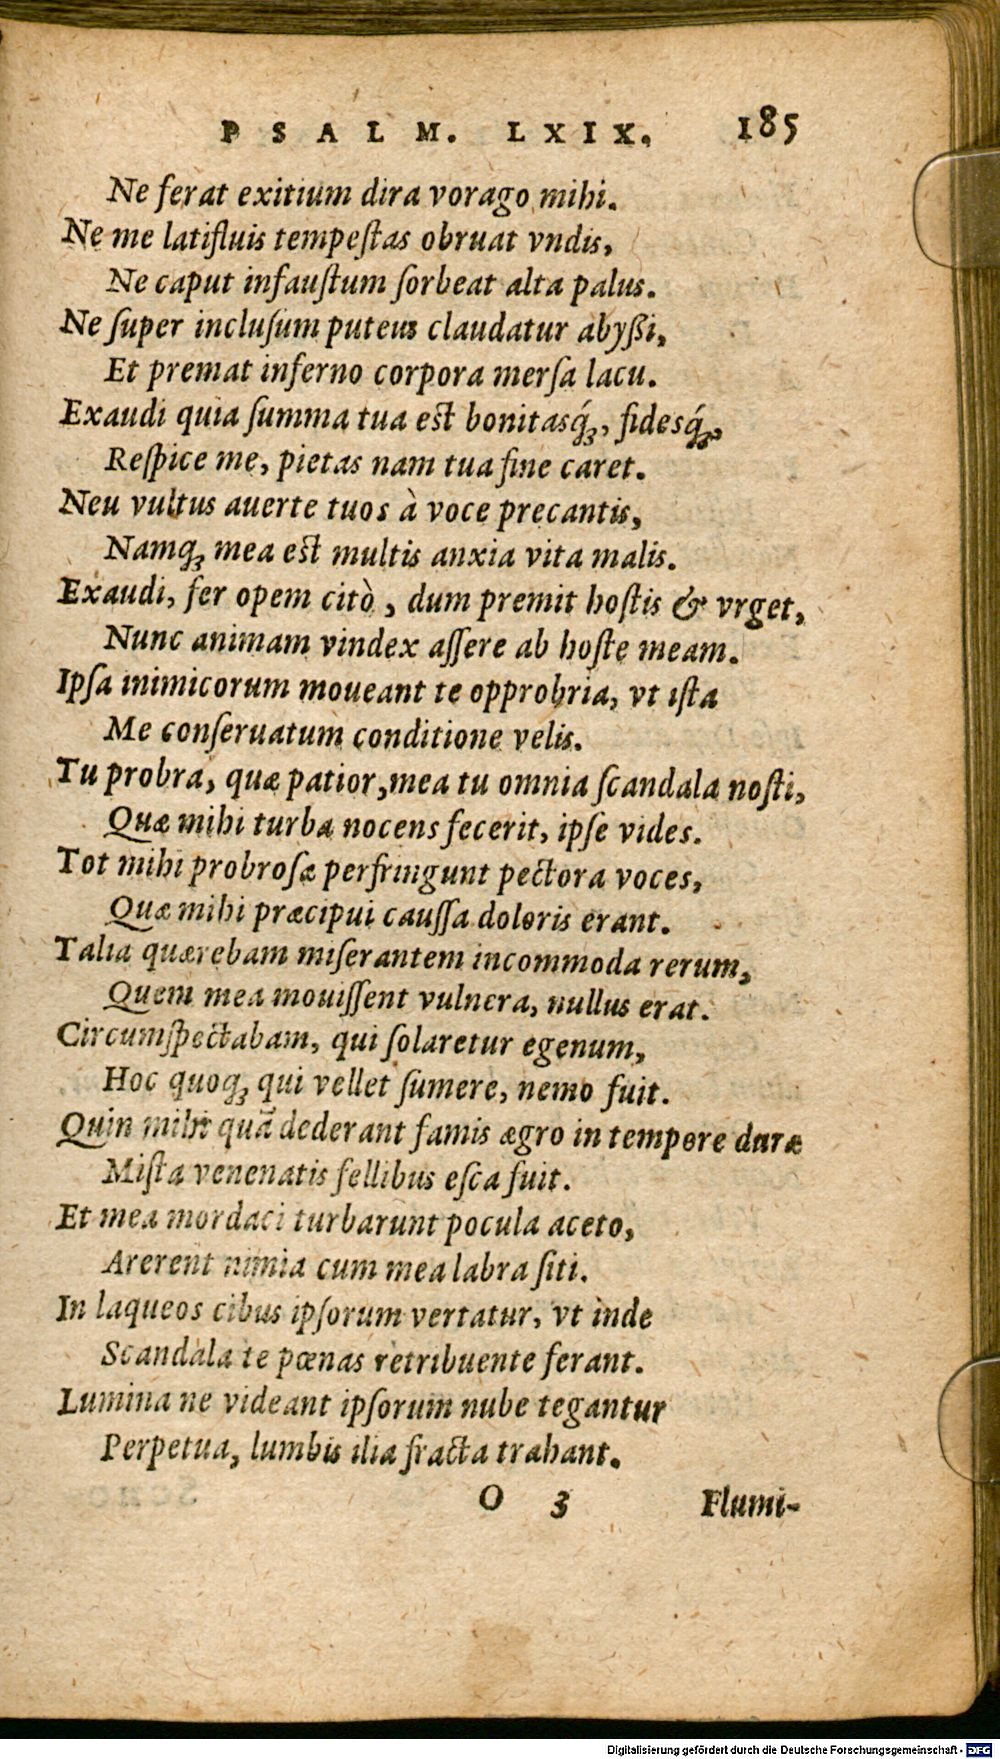 PSALM. LXIX. 185
Ne ferat exitium dira vorago mihi.
Ne me latifluis tempeſtas obruat vndis,
Ne caput infauſtum ſorbeat alta palus.
Ne ſuper incluſum puteus claudatur abyßi,
Et premat inferno corpora merſa lacu.
Exaudi quia ſumma tua eſt bonitasq́;, fidesq́;,
Reſpice me, pietas nam tua fine caret.
Neu vultus auerte tuos à voce precantis,
Namq; mea eſt multis anxia vita malis.
Exaudi, fer opem citò, dum premit hoſtis & vrget,
Nunc animam vindex aſſere ab hoſte meam.
Ipſa inimicorum moueant te opprobria, vt iſta
Me conſeruatum conditione velis.
Tu probra, quæ patior, mea tu omnia ſcandala noſti,
Quæ mihi turba nocens fecerit, ipſe vides.
Tot mihi probroſæ perfringunt pectora voces,
Quæ mihi præcipui cauſſa doloris erant.
Talia quærebam miſerantem incommoda rerum,
Quem mea mouiſſent vulnera, nullus erat.
Circumſpectabam, qui ſolaretur egenum,
Hoc quoq; qui vellet ſumere, nemo fuit.
Quin mihi quā dederant famis ægro in tempore duræ
Miſta venenatis fellibus eſca fuit.
Et mea mordaci turbarunt pocula aceto,
Arerent nimia cum mea labra ſiti.
In laqueos cibus ipſorum vertatur, vt inde
Scandala te pœnas retribuente ferant.
Lumina ne videant ipſorum nube tegantur
Perpetua, lumbis ilia fracta trahant.
O 3 Flumi-
Digitalisierung gefördert durch die Deutsche Forschungsgemeinschaft - DFG